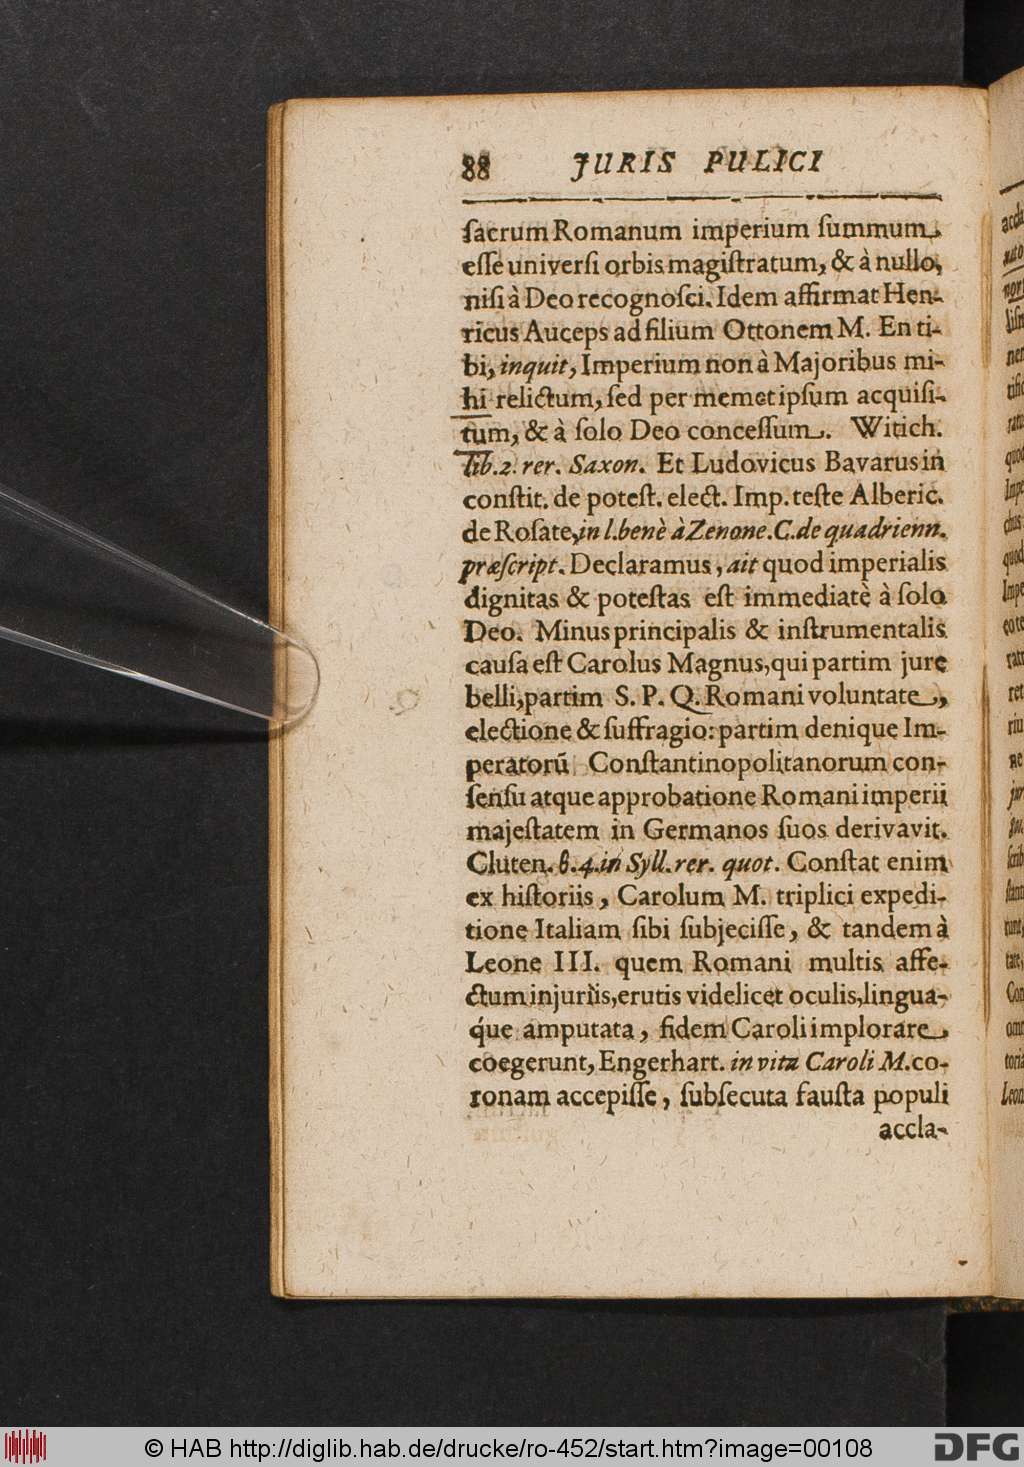 88 JURIS PULICI
ſacrum Romanum imperium ſummum
eſſe univerſi orbis magiſtratum, & à nullo,
niſi à Deo recognoſci. Idem affirmat Hen-
ricus Auceps ad filium Ottonem M. En ti-
bi, inquit, Imperium non à Majoribus mi-
hi relictum, ſed per memetipſum acquiſi-
tum, & à ſolo Deo conceſſum. Witich.
lib. 2. rer. Saxon. Et Ludovicus Bavarus in
conſtit. de poteſt. elect. Imp. teſte Alberic.
de Roſate, in l. benè à Zenone. C. de quadrienn.
præſcript. Declaramus, ait quod imperialis
dignitas & poteſtas eſt immediatè à ſolo
Deo. Minus principalis & inſtrumentalis
cauſa eſt Carolus Magnus, qui partim jure
belli, partim S. P. Q. Romani voluntate,
electione & ſuffragio: partim denique Im-
peratorũ Conſtantinopolitanorum con-
ſenſu atque approbatione Romani imperii
majeſtatem in Germanos ſuos derivavit.
Cluten. b. 4. in Syll. rer. quot. Conſtat enim
ex hiſtoriis, Carolum M. triplici expedi-
tione Italiam ſibi ſubjeciſſe, & tandem à
Leone III. quem Romani multis affe-
ctum injuriis, erutis videlicet oculis, lingua-
q́ue amputata, fidem Caroli implorare
coegerunt, Engerhart. in vita Caroli M. co-
ronam accepiſſe, ſubſecuta fauſta populi
accla-
© HAB http://diglib.hab.de/drucke/ro-452/start.htm?image=00108
DFG